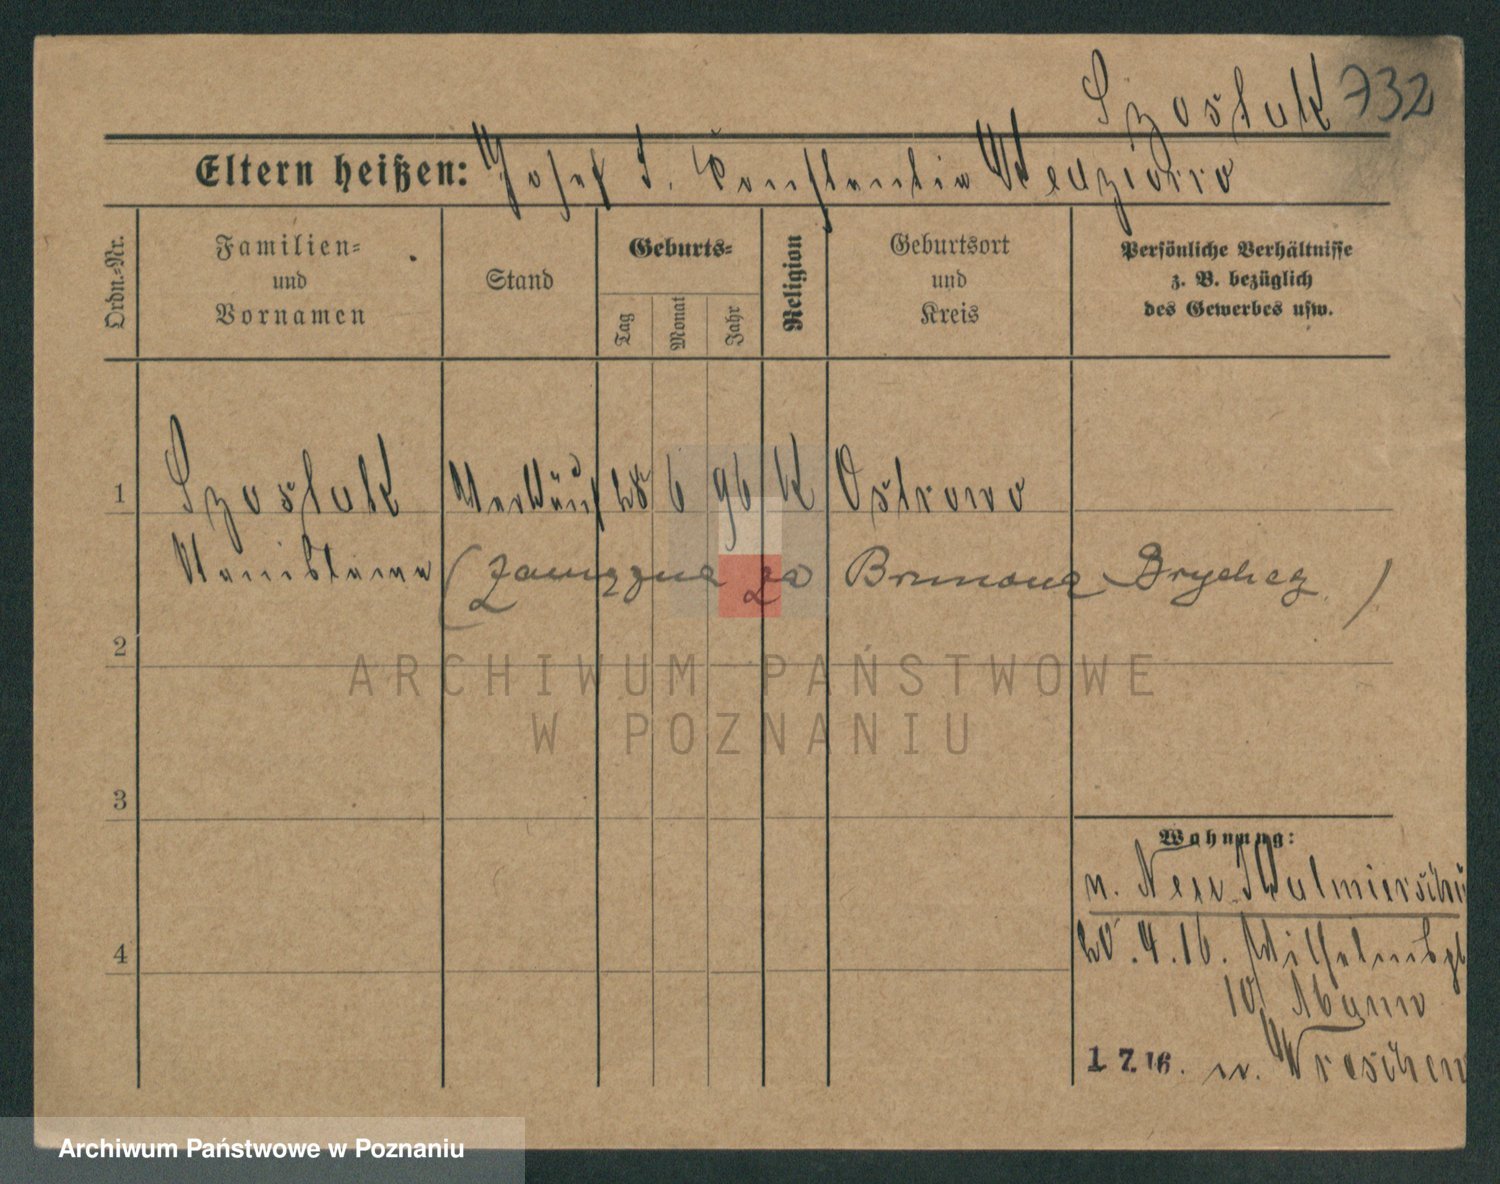 Szostak 732
Eltern heißen: Josef u. Konstantia Wendziono
Ordn.-Nr.
Familien-
und
Vornamen
Stand
Geburts-
Tag
Monat
Jahr
Religion
Geburtsort
und
Kreis
Persönliche Verhältnisse
z. B. bezüglich
des Gewerbes usw.
1 Szostak Verkäuf 6 96 K Ostrowo
Stanislawa (zamężna za Brunona Brychcy.)
2
3
4
Wohnung:
n. Neu
20.4.16. Wilhelmspl
10
1.7.16. n. Wreschen
ARCHIWUM PAŃSTWOWE
W POZNANIU
Archiwum Państwowe w Poznaniu